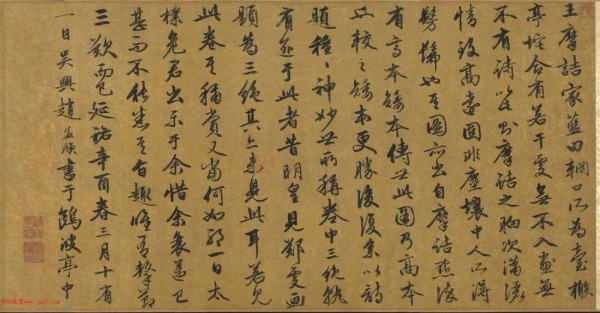 王摩詰家藍田輞口所為臺榭
亭垞合有若干處無不入畫無
不有詩此則摩詰之胸次瀟洒
情致高遠固非塵壤中人所得
髣髴也至圖所出自摩詰然後
有高本矮本傳世此圖乃高本
而校之矮本更勝後復系以詩
題種々神妙世所稱卷中三絕孰
有逾于此者昔明皇見鄭虔畫
題為三絕其亦未見此耳若見
此卷其稱賞又當何如耶一日太
樸危君出示于余惜余衰邁已
甚而不能悉其旨趣惟有擊節
三歎而已延祐辛酉春三月十有
一日吳興趙孟頫書于鷗波亭中